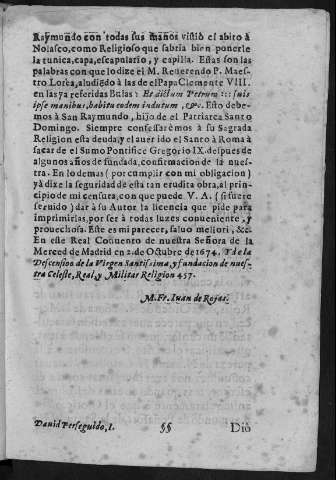 Raymundo con todas sus manos vistiò el abito à
Nolasco, como Religioso que sabria bien ponerle
la tunica, capa, escapulario, y capilla. Estas son las
palabras con que lo dize el M. Reuerendo P. Maes-
tro Lorea, aludiẽdo à las de el Papa Clemente VIII.
en las ya referidas Bulas: Et dictum Petrum ::: suis
ipse manibus, habitu eodem indutum, &c. Esto debe-
mos à San Raymundo, hijo de el Patriarca Santo
Domingo. Siempre confessarèmos à su Sagrada
Religion esta deuda, y el auer ido el Santo à Roma à
sacar de el Sumo Pontifice Gregorio IX. despues de
algunos años de fundada, confirmacion de la nues-
tra. En lo demas (por cumplir con mi obligacion)
yà dize la seguridad de esta tan erudita obra, al prin-
cipio de mi censura, con que puede V. A. (si fuere
seruido) dar à su Autor la licencia que pide para
imprimirlas, por ser à todas luzes conueniente, y
prouechosa. Este es mi parecer, saluo meliori, &c.
En este Real Conuento de nuestra Señora de la
Merced de Madrid en 2. de Octubre de 1674. Y de la
Descension de la Virgen Santissima, y fundacion de nues-
tra Celeste, Real, y Militar Religion 457.
M. Fr. Iuan de Rojas.
Dauid Perseguido, 1. §§ Diò